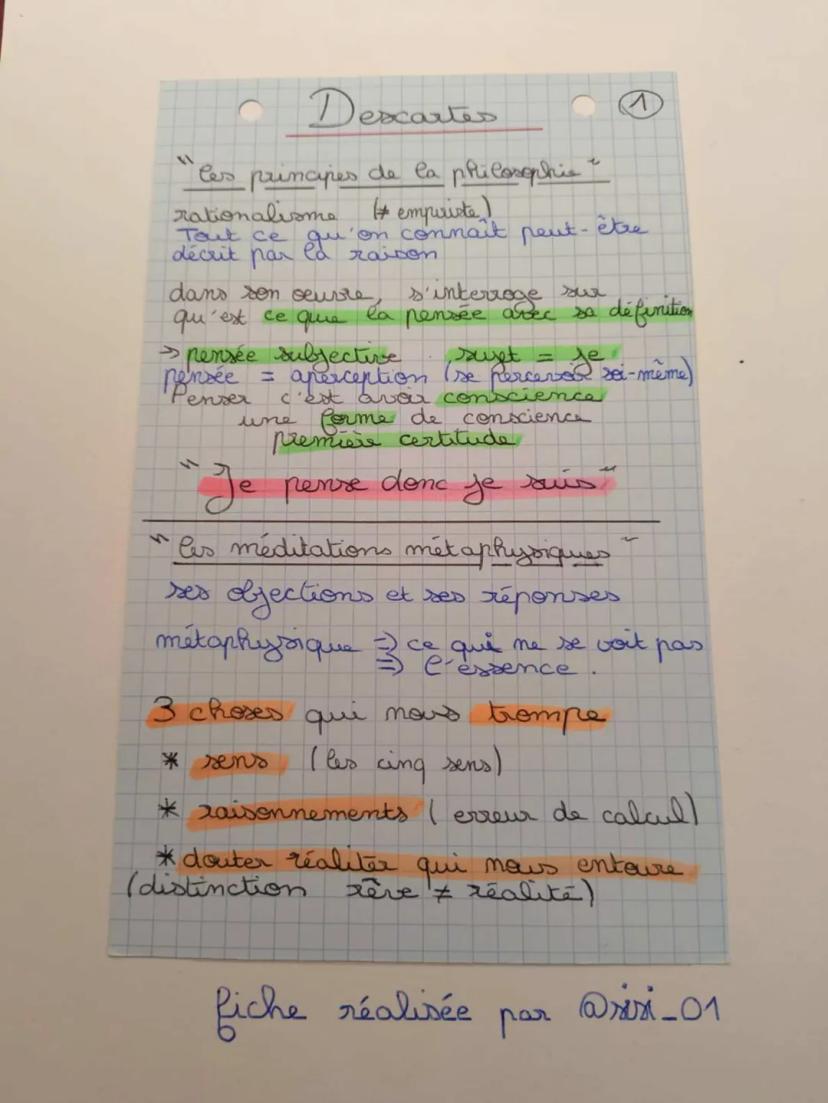 Descartes
1
"les principes de la philosophie"
rationalisme (≠ empiriste)
Tout ce qu'on connaît peut-être
décrit par la raison
dans son oeuvre, s'interroge sur
qu'est ce que la pensée avec sa définition
→ pensée subjective . sujet = je
pensée = aperception (se percevoir soi-même)
Penser c'est avoir conscience
une forme de conscience
première certitude
"Je pense donc je suis"
"les méditations métaphysiques"
ses objections et ses réponses
métaphysique => ce qui ne se voit pas
=> l'essence.
3 choses qui nous trompe
* sens (les cinq sens)
* raisonnements (erreur de calcul)
* douter réaliter qui nous entoure
(distinction rêve ≠ réalité)
fiche réalisée par @sisi_01